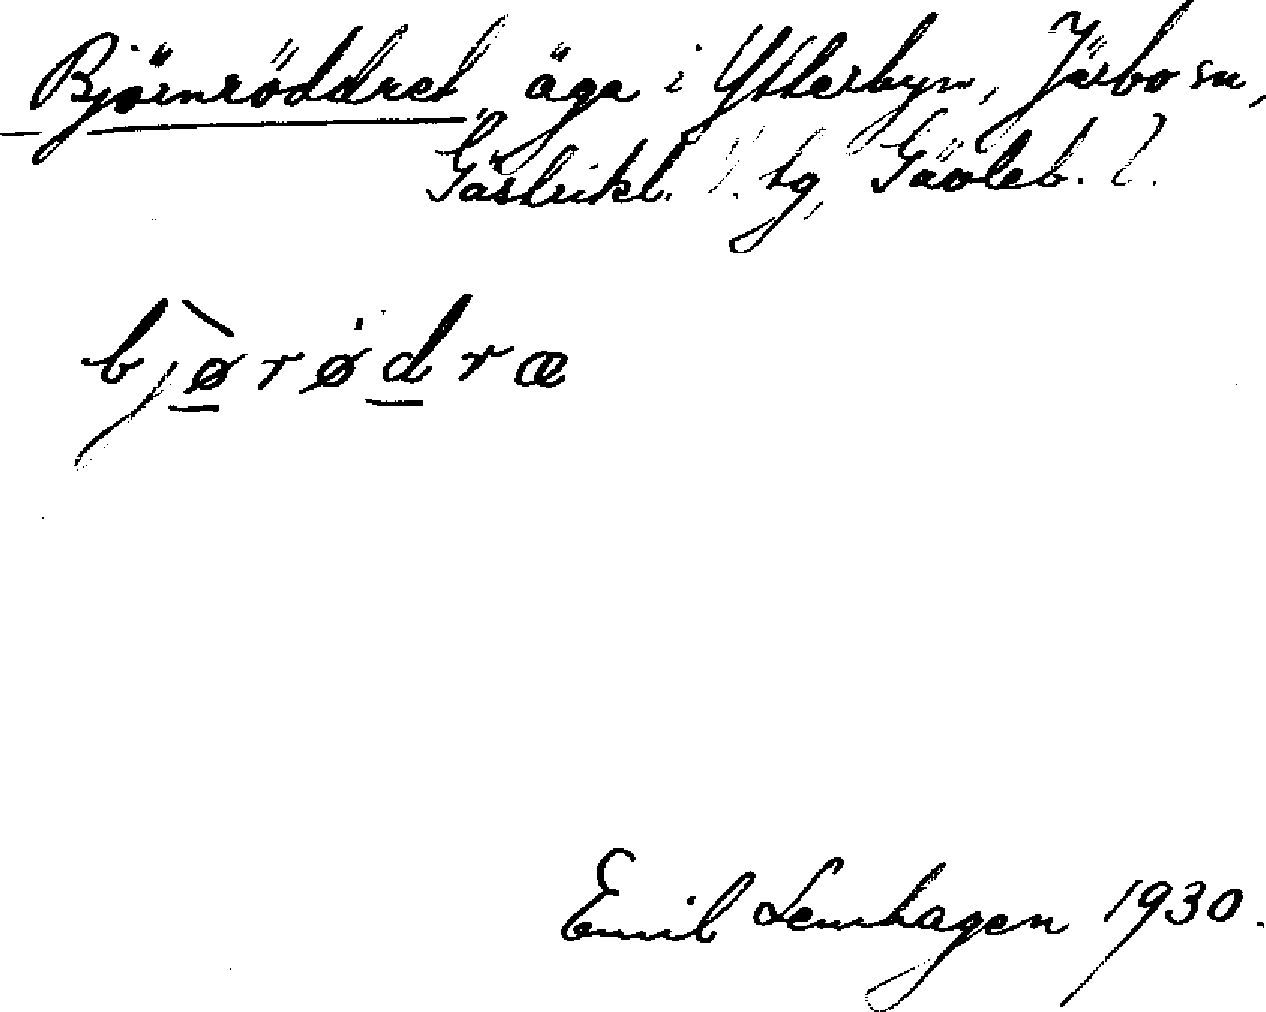 Björnröddret äga i Ytterbyn, Järbo sn,
Gästrikl. V. hg, Gävleb. l.
bjørødræ
Emil Lemhagen 1930.